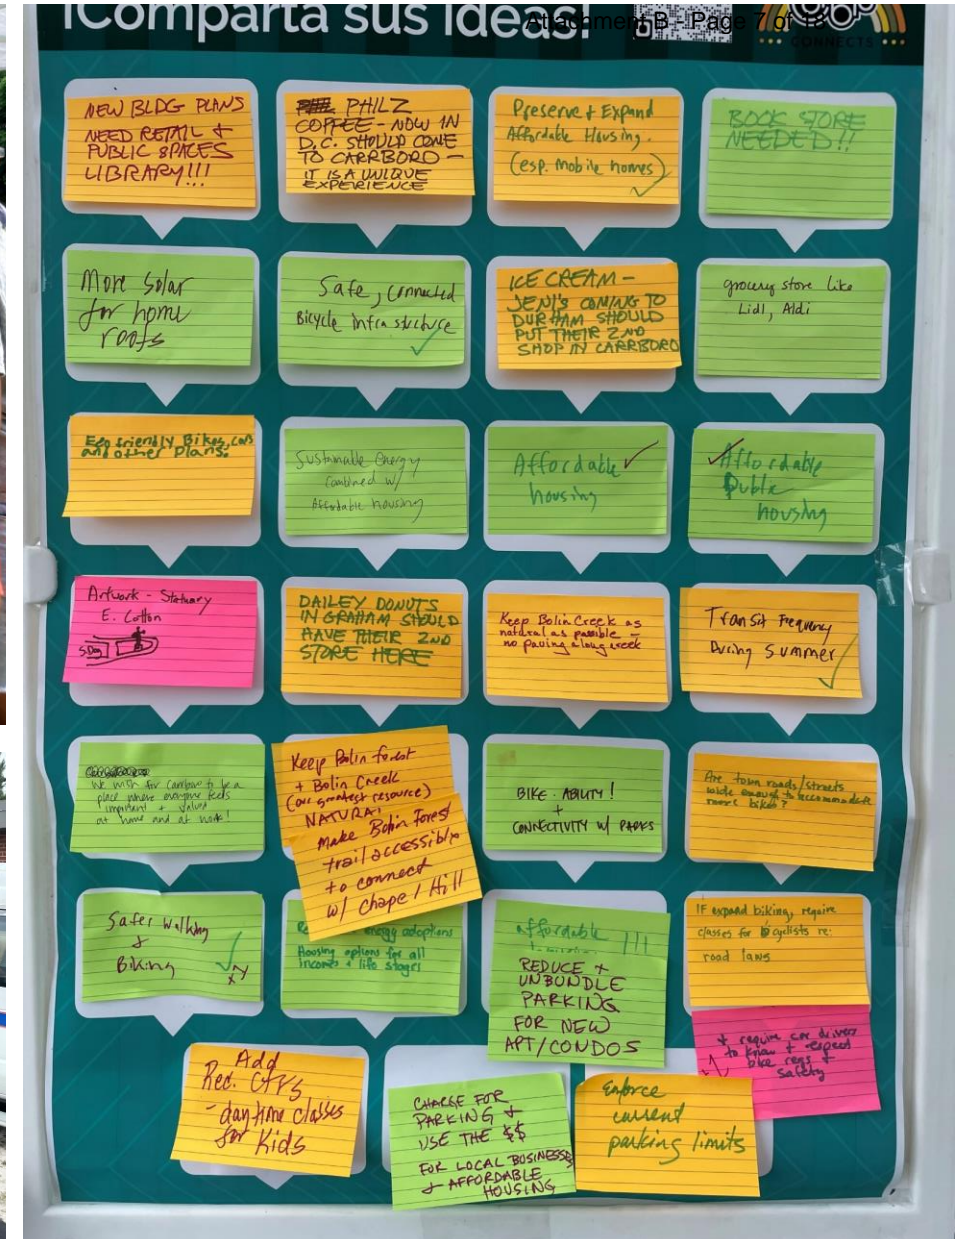 ¡Comparta sus ideas!
Attachment B - Page 7 of 18
CONNECTS
NEW BLDG PLANS
NEED RETAIL &
PUBLIC SPACES
LIBRARY!!!
PHILZ
COFFEE - NOW IN
D.C. SHOULD COME
TO CARRBORO -
IT IS A UNIQUE
EXPERIENCE
Preserve + Expand
Affordable Housing.
(esp. mobile homes)
BOOK STORE
NEEDED!!
More Solar
for home
roofs
Safe, Connected
Bicycle Infrastructure
ICE CREAM -
JENI'S COMING TO
DURHAM SHOULD
PUT THEIR 2ND
SHOP IN CARRBORO
grocery store like
Lidl, Aldi
Eco friendly Bikes, cars
and other plans.
Sustainable Energy
Combined w/
Affordable housing
Affordable
housing
Affordable
Public
housing
Artwork - Statuary
E. Cotton
DAILEY DONUTS
IN GRAHAM SHOULD
HAVE THEIR 2ND
STORE HERE
Keep Bolin Creek as
natural as possible -
no paving along creek
Transit Frequency
During Summer
We wish for Carrboro to be a
place where everyone feels
important + valued
at home and at work!
Keep Bolin forest
+ Bolin Creek
(our greatest resource)
NATURAL
Make Bolin Forest
trail accessible
to connect
w/ Chapel Hill
BIKE-ABILITY!
+
CONNECTIVITY w/ PARKS
Are town roads/streets
wide enough to accommodate
more bikes?
Safer Walking
&
Biking
energy adoptions
Housing options for all
incomes + life stages
affordable
!!!
REDUCE +
UNBUNDLE
PARKING
FOR NEW
APT/CONDOS
IF expand biking, require
classes for bicyclists re:
road laws
+ require car drivers
to know + respect
bike regs +
safety
Add
Rec. Ctrs
- daytime classes
for Kids
CHARGE FOR
PARKING &
USE THE $$
FOR LOCAL BUSINESSES
& AFFORDABLE
HOUSING
Enforce
current
parking limits